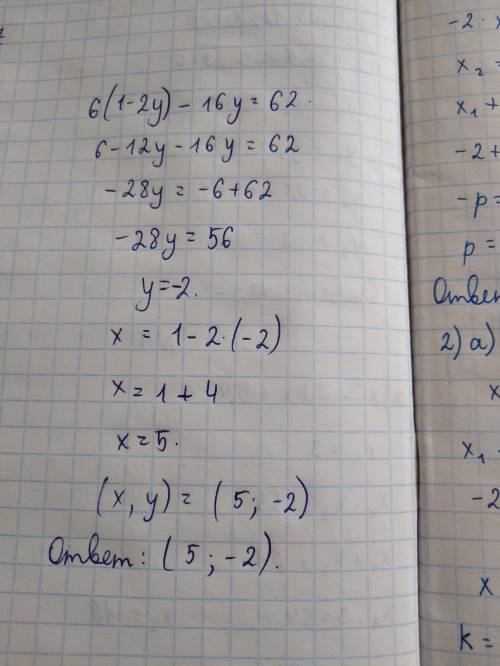 6(1-2y) - 16y = 62.
6 - 12y - 16y = 62
-28y = -6+62
-28y = 56
y = -2.
x = 1 - 2·(-2)
x = 1 + 4
x = 5.
(x, y) = (5; -2)
Ответ: (5; -2).
-2·
x₂ =
x₁ +
-2+
-p =
p =
2) a)
x
x₁
-2
x
k =